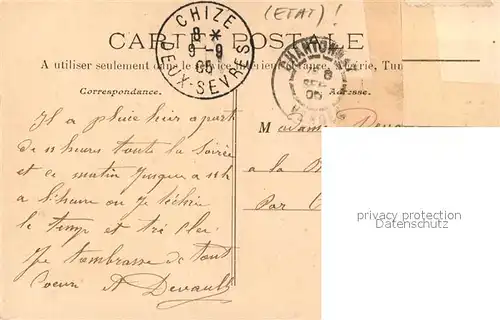 (ETAT)!
CARTE POSTALE
CHIZÉ
8 *
9 - 9
05
DEUX-SEVRES
8
SEPT
05
A utiliser seulement dans le service intérieur France, Algérie, Tun
Correspondance.
Adresse.
Il a pluie hier apart
11 heures toute la soirée
et ce matin jusque a 11h
a l'heure ou Je técrire
le temp et tri
Je tembrasse de tout
Coeur A Devault
Madame
a la
Par
privacy protection
Datenschutz